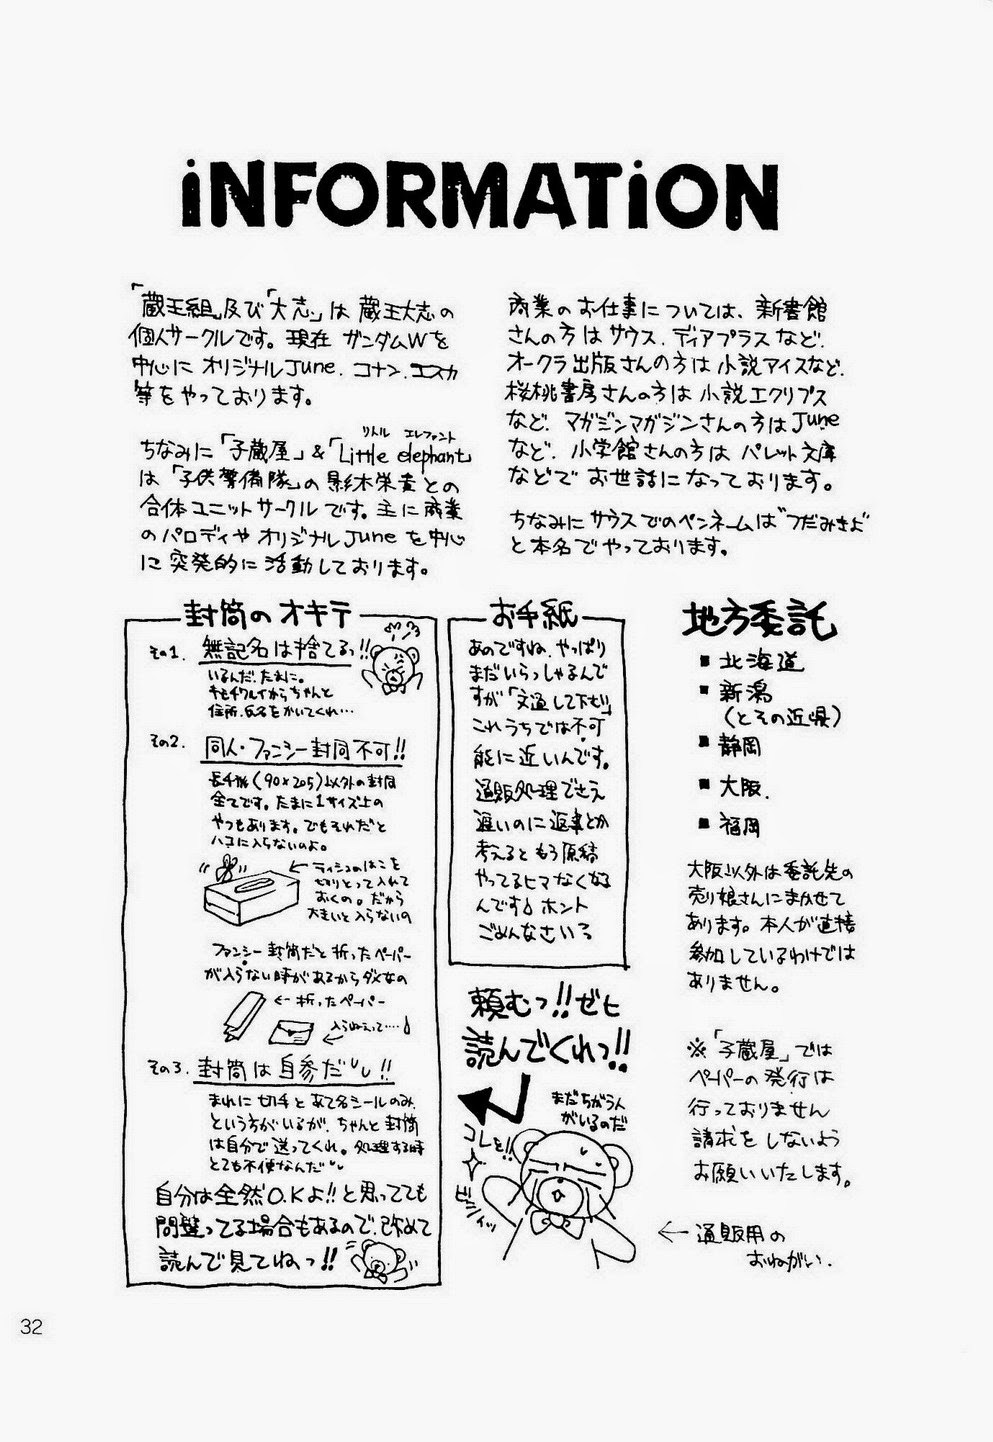 iNFORMATiON
「蔵王組」及び「大志」は 蔵王大志の
個人サークルです。現在 ガンダムWを
中心に オリジナルJune. コナン. エスカ
等をやっております。
リトル エレファント
ちなみに「子蔵屋」&「Little elephant」
は「子供警備隊」の影木栄貴との
合体ユニットサークルです。主に商業
のパロディや オリジナルJuneを中心
に 突発的に活動しております。
商業の お仕事については、新書館
さんの方は サウス. ディアプラス など.
オークラ出版さんの方は 小説アイスなど.
桜桃書房さんの方は 小説エクリプス
など. マガジンマガジンさんの方は June
など. 小学館さんの方は パレット文庫
などで お世話になっております。
ちなみに サウスでのペンネームは“つだみきよ”
と本名でやっております。
封筒のオキテ
その1. 無記名は捨てるっ!!
いるんだ. たまに。
キモチワルイからちゃんと
住所. 氏名をかいてくれ…
その2. 同人・ファンシー封筒不可!!
長4版(90×205)以外の封筒
全てです。たまに1サイズ上の
やつもあります。でもそれだと
ハコに入らないのよ。
← ティシュのはこを
切りとって入れて
おくの。だから
大きいと入らないの
ファンシー封筒だと 折ったペーパー
が入らない時があるからダメなの
← 折ったペーパー
入らねえって…
その3. 封筒は自参だ!!
まれに 切手と あて名シールのみ.
という方がいるが. ちゃんと封筒
は自分で送ってくれ。処理する時
とても不便なんだ
自分は全然O.Kよ!!と思ってても
間違ってる場合もあるので. 改めて
読んで見てねっ!!
お手紙
あのですね. やっぱり
まだいらっしゃるんで
すが「文通して下さい」
これうちでは不可
能に近いんです。
通販処理でさえ
遅いのに返事とか
考えると もう原稿
やってるヒマなくなる
んです♪ホント
ごめんなさい
頼むっ!!ゼヒ
読んでくれっ!!
まだちがう人
がいるのだ
コレを!!
地方委託
■ 北海道
■ 新潟
(とその近県)
■ 静岡
■ 大阪.
■ 福岡
大阪以外は委託先の
売り娘さんにまかせて
あります。本人が直接
参加しているわけでは
ありません。
※「子蔵屋」では
ペーパーの発行は
行っておりません
請求をしないよう
お願いいたします。
← 通販用の
おねがい.
32